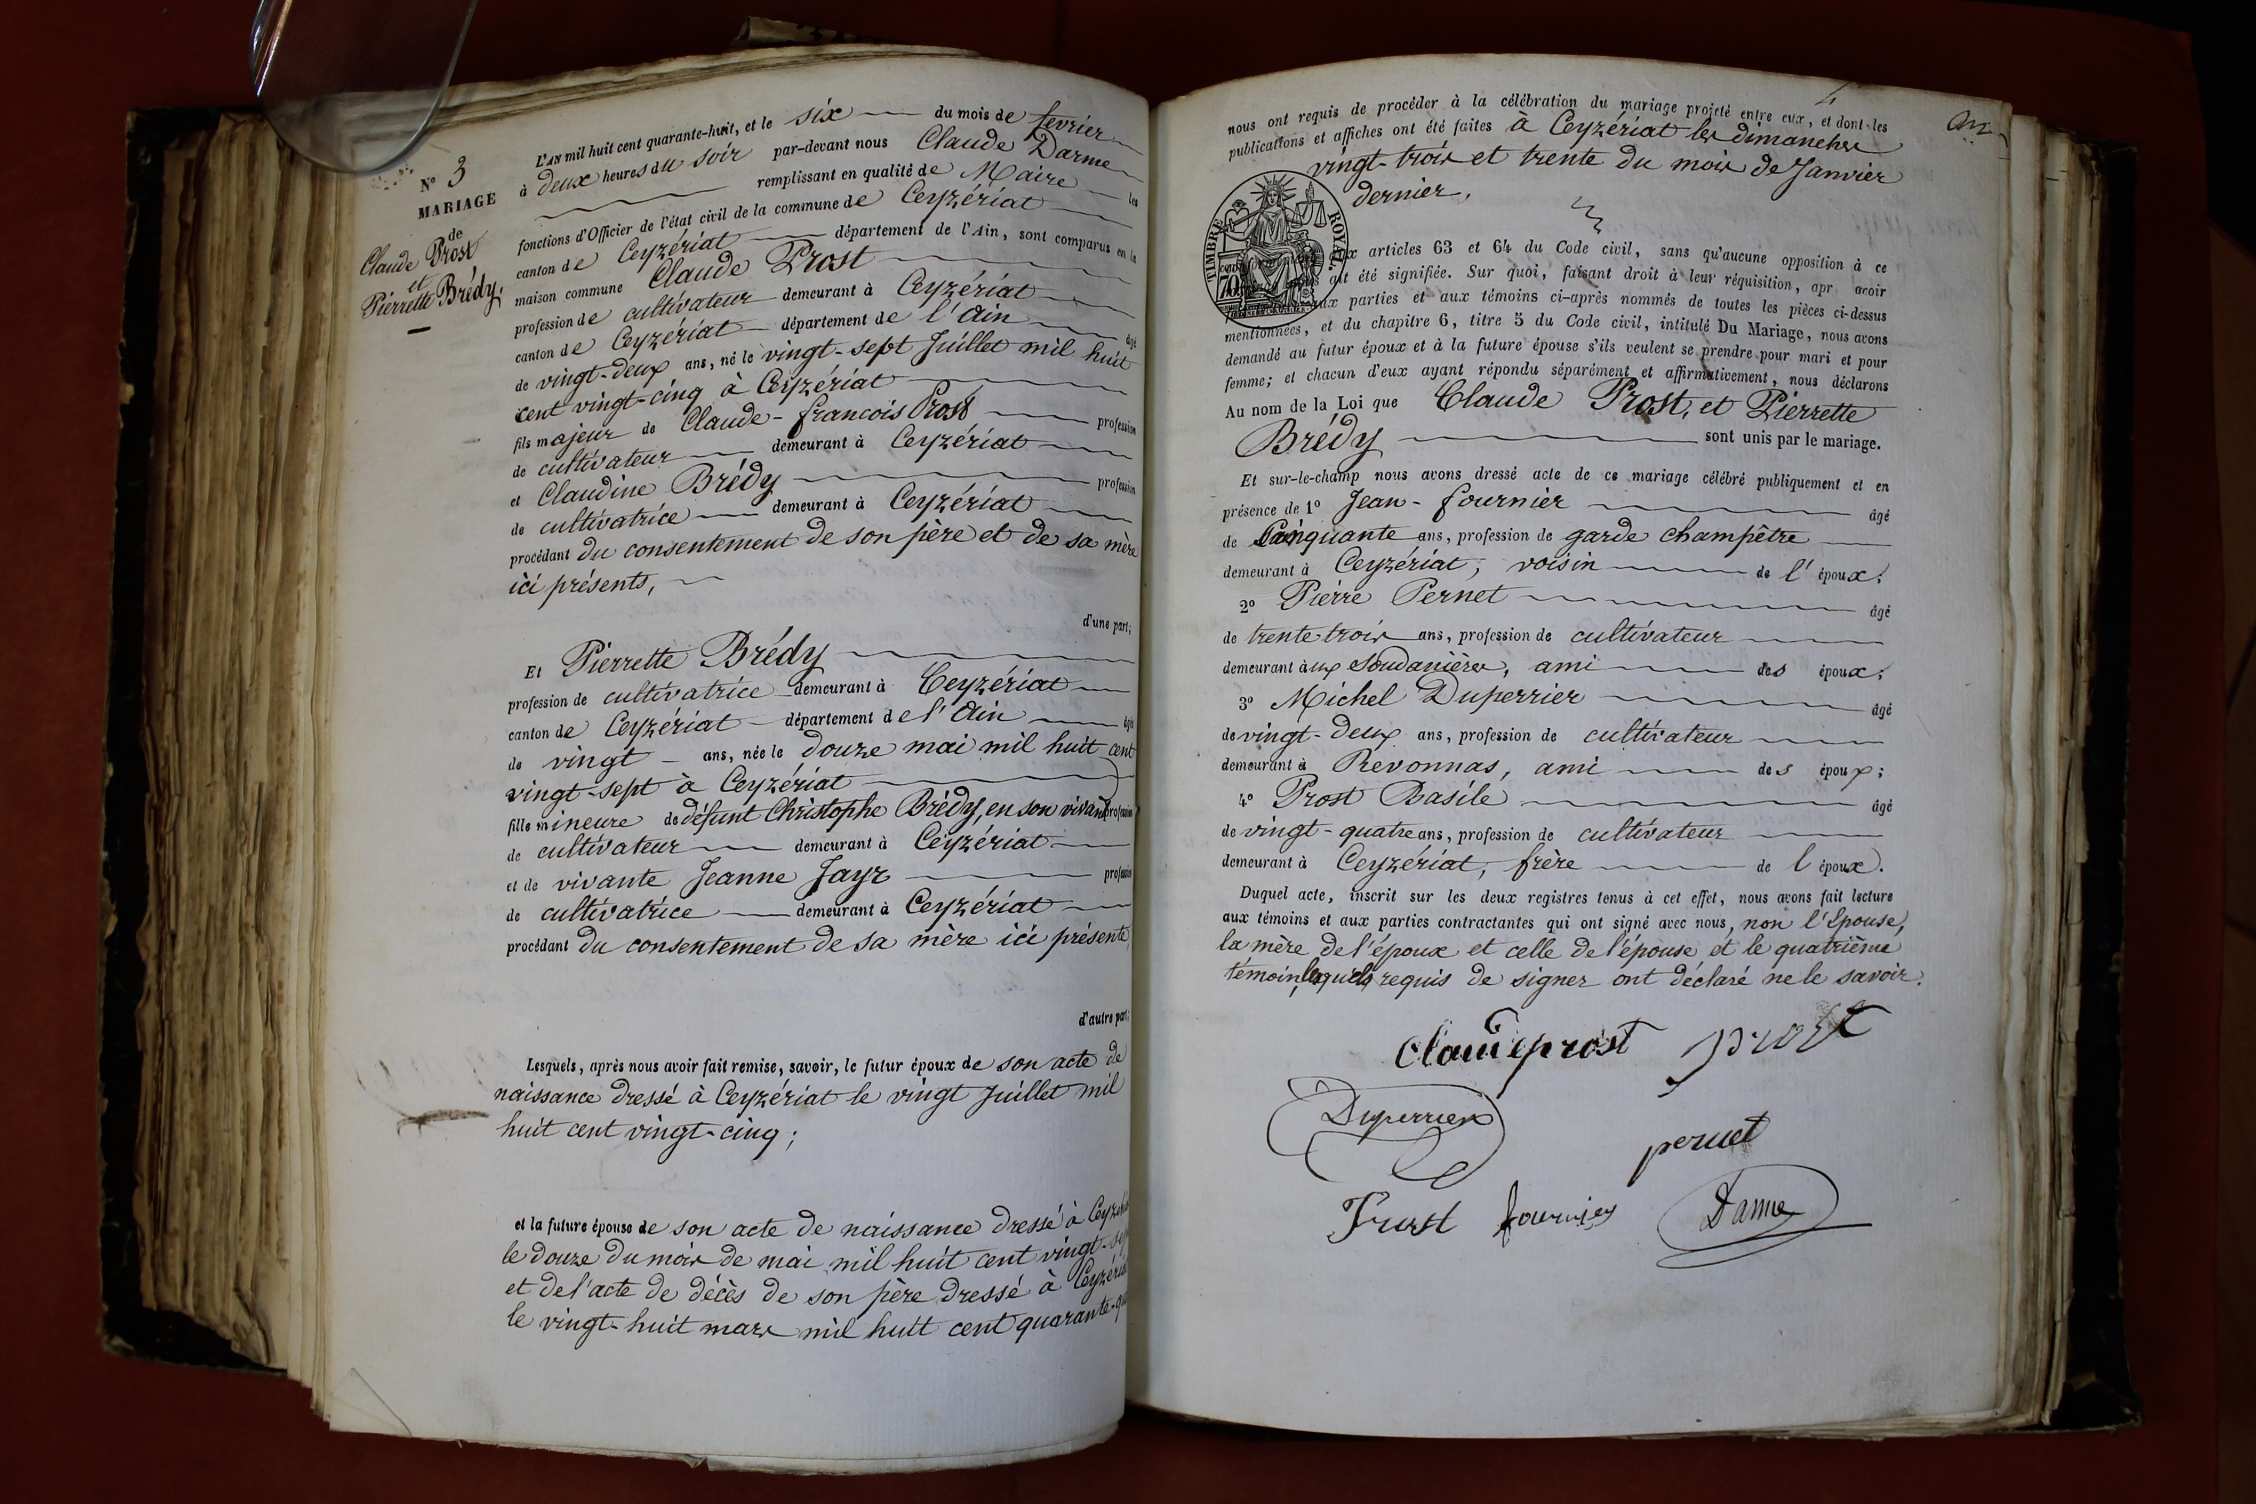 N° 3
MARIAGE
de
Claude Prost
et
Pierrette Brédy.
L'AN mil huit cent quarante-huit, et le six du mois de fevrier
à deux heures du soir par-devant nous Claude Darme
remplissant en qualité de Maire les
fonctions d'Officier de l'état civil de la commune de Ceyzériat
canton de Ceyzériat département de l'Ain, sont comparus en la
maison commune Claude Prost
profession de cultivateur demeurant à Ceyzériat
canton de Ceyzériat département de l'Ain âgé
de vingt-deux ans, né le vingt-sept Juillet mil huit
cent vingt-cinq à Ceyzériat
fils majeur de Claude-francois Prost profession
de cultivateur demeurant à Ceyzériat
et Claudine Brédy profession
de cultivatrice demeurant à Ceyzériat
procédant du consentement de son père et de sa mère
ici présents,
d'une part;
Et Pierrette Brédy
profession de cultivatrice demeurant à Ceyzériat
canton de Ceyzériat département de l'Ain âgée
de vingt ans, née le douze mai mil huit cent
vingt-sept à Ceyzériat
fille mineure de défunt Christophe Brédy, en son vivant profession
de cultivateur demeurant à Ceyzériat
et de vivante Jeanne Jayr profession
de cultivatrice demeurant à Ceyzériat
procédant du consentement de sa mère ici présente
d'autre part;
Lesquels, après nous avoir fait remise, savoir, le futur époux de son acte de
naissance dressé à Ceyzériat le vingt Juillet mil
huit cent vingt-cinq;
et la future épouse de son acte de naissance dressé à
le douze du mois de mai mil huit cent vingt-
et de l'acte de décès de son père dressé à
le vingt-huit mars mil huit cent quarante-
4
nous ont requis de procéder à la célébration du mariage projeté entre eux, et dont les
publications et affiches ont été faites à Ceyzériat les dimanches
vingt-trois et trente du mois de Janvier
dernier,
TIMBRE ROYAL
70
articles 63 et 64 du Code civil, sans qu'aucune opposition à ce
ait été signifiée. Sur quoi, faisant droit à leur réquisition, apr avoir
aux parties et aux témoins ci-après nommés de toutes les pièces ci-dessus
mentionnées, et du chapitre 6, titre 5 du Code civil, intitulé Du Mariage, nous avons
demandé au futur époux et à la future épouse s'ils veulent se prendre pour mari et pour
femme; et chacun d'eux ayant répondu séparément et affirmativement, nous déclarons
Au nom de la Loi que Claude Prost, et Pierrette
Brédy sont unis par le mariage.
Et sur-le-champ nous avons dressé acte de ce mariage célébré publiquement et en
présence de 1° Jean-fournier âgé
de Cinquante ans, profession de garde champêtre
demeurant à Ceyzériat, voisin de l'époux;
2° Pierre Pernet âgé
de trente trois ans, profession de cultivateur
demeurant aux Soudanières, ami des époux;
3° Michel Duperrier âgé
de vingt-deux ans, profession de cultivateur
demeurant à Revonnas, ami des époux;
4° Prost Basile âgé
de vingt-quatre ans, profession de cultivateur
demeurant à Ceyzériat, frère de l époux.
Duquel acte, inscrit sur les deux registres tenus à cet effet, nous avons fait lecture
aux témoins et aux parties contractantes qui ont signé avec nous, non l'Epouse,
la mère de l'époux et celle de l'épouse et le quatrième
témoin, lesquels requis de signer ont déclaré ne le savoir.
Claude prost prost
Duperrier
pernet
Prost fournier Darme